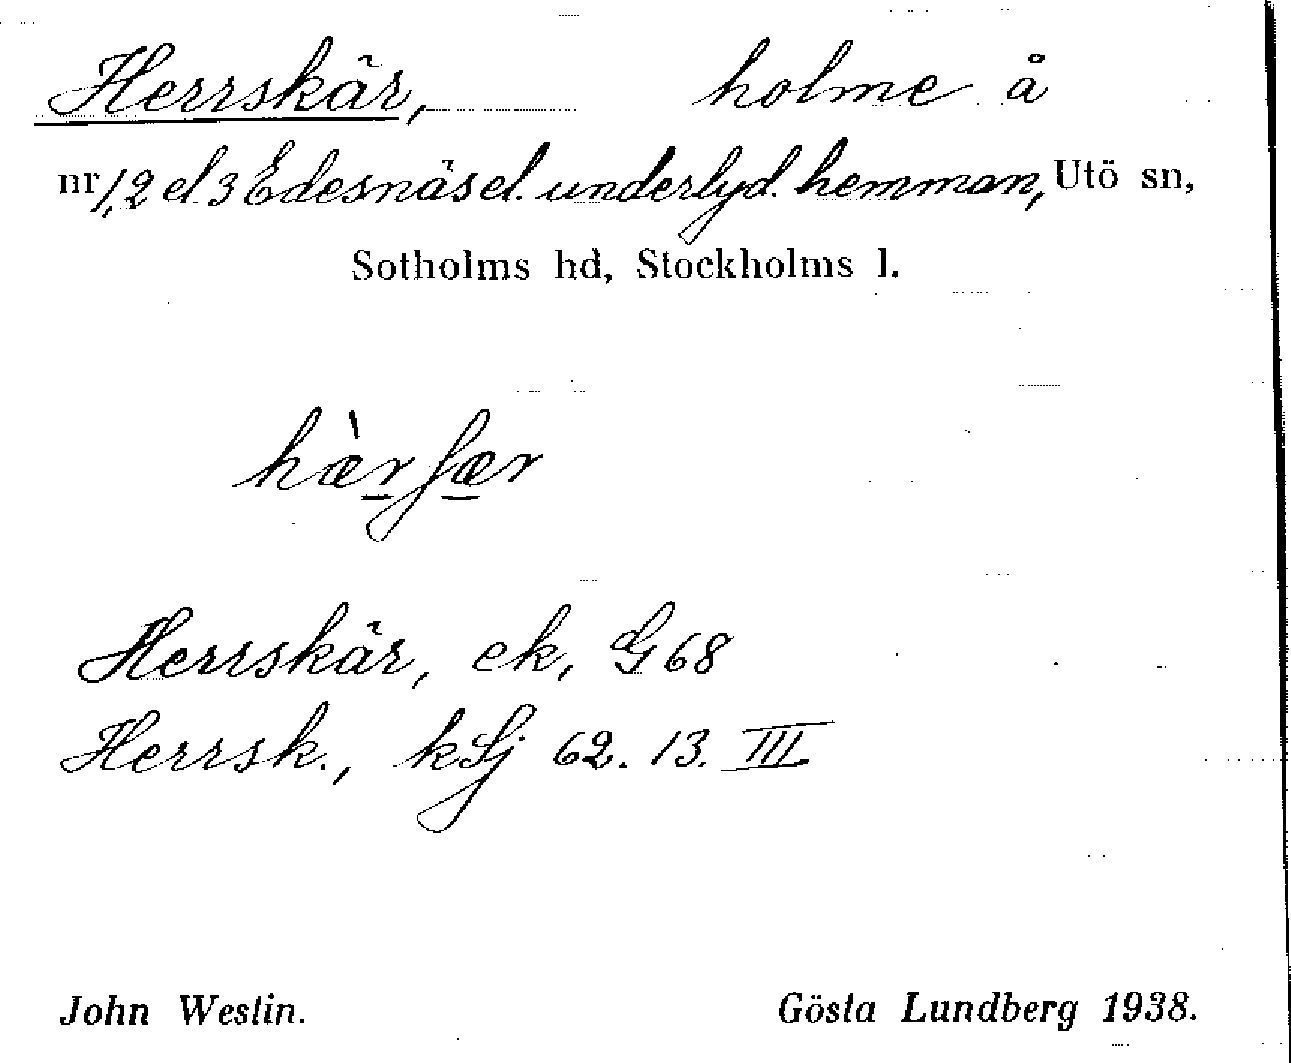 Herrskär, holme å
nr 1,2 el 3 Edesnäs el. underlyd. hemman, Utö sn,
Sotholms hd, Stockholms l.
hæ̀rʃær
Herrskär, ek, G68
Herrsk., kSj 62. 13. III
John Westin. Gösta Lundberg 1938.